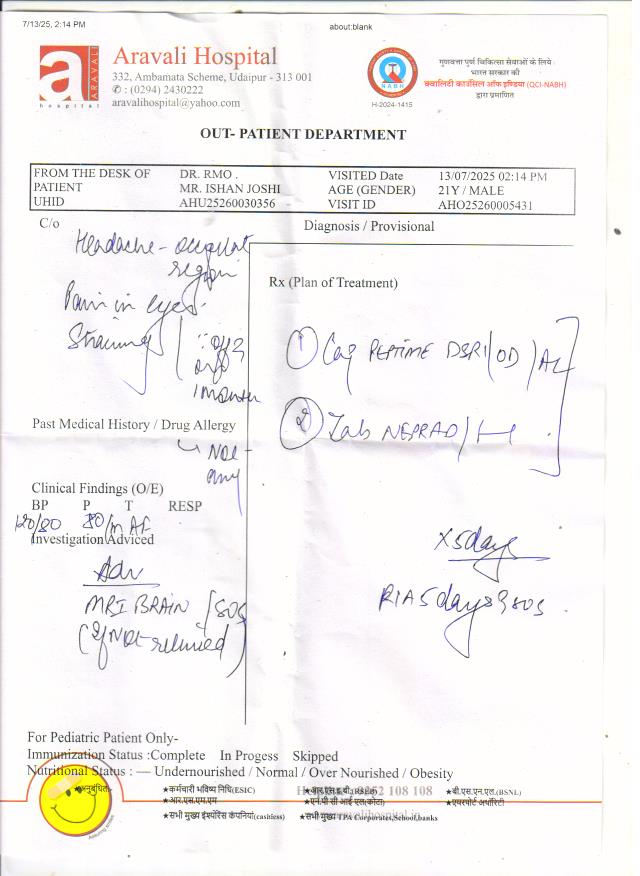 7/13/25, 2:14 PM
about:blank
ARAVALI
hospital
Aravali Hospital
332, Ambamata Scheme, Udaipur - 313 001
: (0294) 2430222
aravalihospital@yahoo.com
NABH
H-2024-1415
गुणवत्ता पुर्ण चिकित्सा सेवाओं के लिये
भारत सरकार की
क्वालिटी काउंसिल ऑफ इण्डिया (QCI-NABH)
द्वारा प्रमाणित
OUT- PATIENT DEPARTMENT
FROM THE DESK OF DR. RMO . VISITED Date 13/07/2025 02:14 PM
PATIENT MR. ISHAN JOSHI AGE (GENDER) 21Y / MALE
UHID AHU25260030356 VISIT ID AHO25260005431
C/o
Diagnosis / Provisional
Headache -
region
Pain in eyes.
Straining
Rx (Plan of Treatment)
1 Cap DSR/OD/
2 Tab
Past Medical History / Drug Allergy
Not
any
Clinical Findings (O/E)
BP P T RESP
120/80 80/m AF
Investigation Adviced
Adv
MRI BRAIN /SOS
(If Not relieved)
X5days
R/A 5days SOS
For Pediatric Patient Only-
Immunization Status :Complete In Progess Skipped
Nutritional Status : — Undernourished / Normal / Over Nourished / Obesity
अनुबंधित-
★कर्मचारी भविष्य निधि(ESIC)
★बी.एस.एन.एल.(BSNL)
★आर.एस.एम.एम
★एन.पी.सी आई एल(कोटा)
★एयरपोर्ट अथॉरिटी
★सभी मुख्य इंश्योरेंस कंपनियां(cashless)
★सभी मुख्य TPA Corporates,School,banks